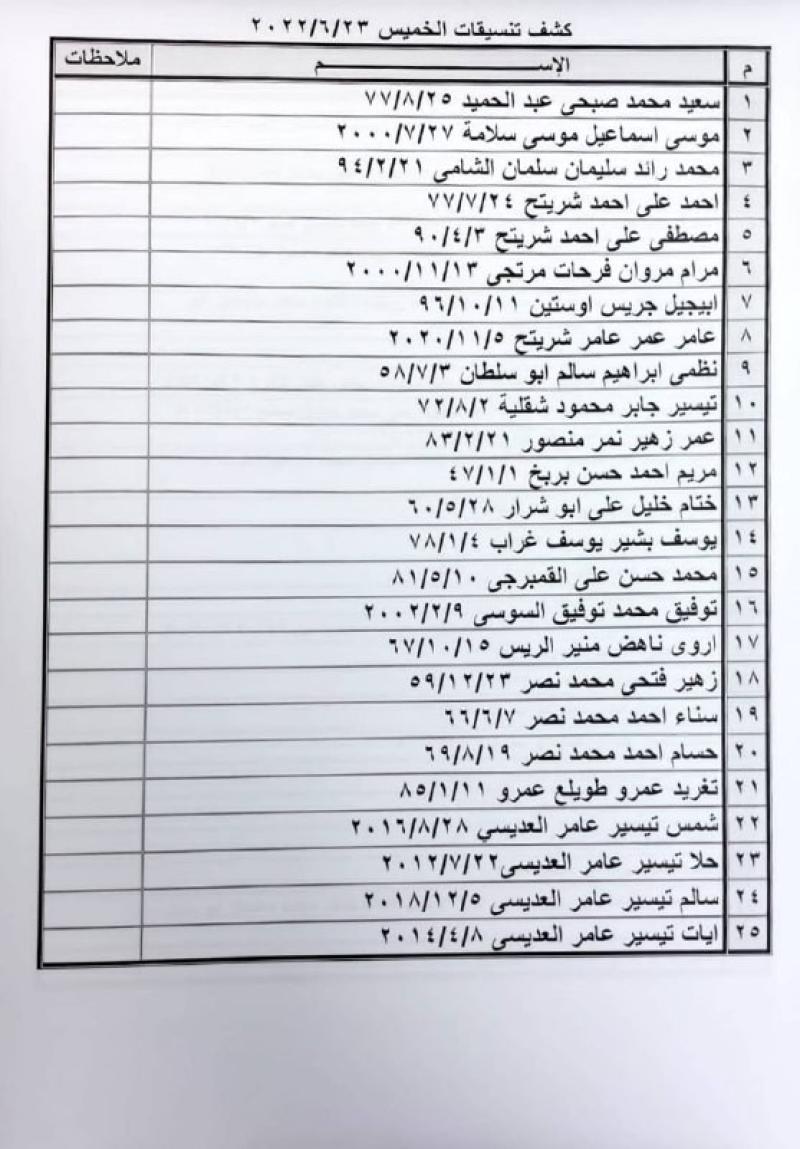 كشف تنسيقات الخميس ٢٠٢٢/٦/٢٣
م الإســـــم ملاحظات
١ سعيد محمد صبحى عبد الحميد ٧٧/٨/٢٥
٢ موسى اسماعيل موسى سلامة ٢٠٠٠/٧/٢٧
٣ محمد رائد سليمان سلمان الشامى ٩٤/٢/٢١
٤ احمد على احمد شريتح ٧٧/٧/٢٤
٥ مصطفى على احمد شريتح ٩٠/٤/٣
٦ مرام مروان فرحات مرتجى ٢٠٠٠/١١/١٣
٧ ابيجيل جريس اوستين ٩٦/١٠/١١
٨ عامر عمر عامر شريتح ٢٠٢٠/١١/٥
٩ نظمى ابراهيم سالم ابو سلطان ٥٨/٧/٣
١٠ تيسير جابر محمود شقلية ٧٢/٨/٢
١١ عمر زهير نمر منصور ٨٣/٢/٢١
١٢ مريم احمد حسن بربخ ٤٧/١/١
١٣ ختام خليل على ابو شرار ٦٠/٥/٢٨
١٤ يوسف بشير يوسف غراب ٧٨/١/٤
١٥ محمد حسن على القمبرجى ٨١/٥/١٠
١٦ توفيق محمد توفيق السوسى ٢٠٠٢/٢/٩
١٧ اروى ناهض منير الريس ٦٧/١٠/١٥
١٨ زهير فتحى محمد نصر ٥٩/١٢/٢٣
١٩ سناء احمد محمد نصر ٦٦/٦/٧
٢٠ حسام احمد محمد نصر ٦٩/٨/١٩
٢١ تغريد عمرو طويلع عمرو ٨٥/١/١١
٢٢ شمس تيسير عامر العديسي ٢٠١٦/٨/٢٨
٢٣ حلا تيسير عامر العديسى٢٠١٢/٧/٢٢
٢٤ سالم تيسير عامر العديسى ٢٠١٨/١٢/٥
٢٥ ايات تيسير عامر العديسى ٢٠١٤/٤/٨